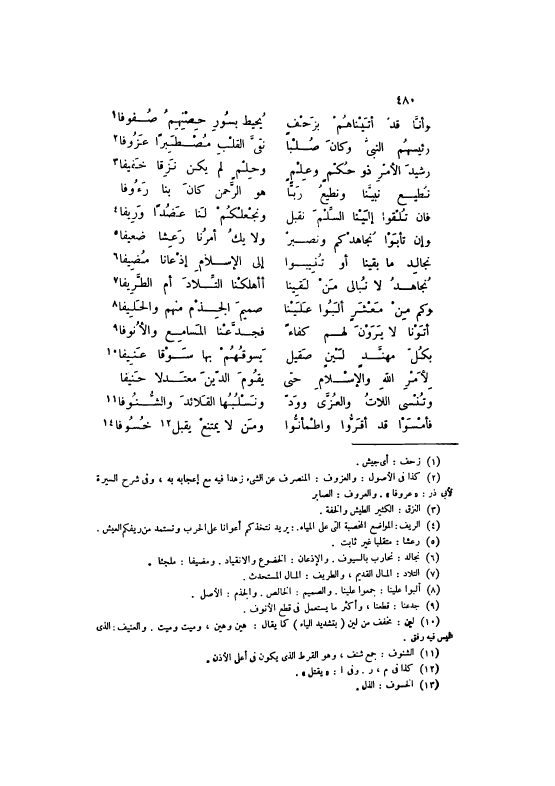 ٤٨٠
وأنَّا قدْ أتَيْناهُمْ بزَحْفٍ يُحيط بسُورِ حِصْنِهِمُ صُفوفا١
رئيسهُم النبيُّ وكانَ صُلْبا نَقيَّ القَلْبِ مُصْطَبِرًا عَزُوفا٢
رشيدَ الأمْرِ ذو حُكْمٍ وعِلْمٍ وحِلْمٍ لم يكن نَزِقا خَفيفا٣
نُطيع نَبيَّنا ونُطيعُ رَبًّا هو الرَّحمنُ كانَ بنا رَءُوفا
فان تُلْقُوا إليْنا السِّلْمَ نَقبلْ ونَجْعَلْكُمْ لَنا عَضُدًا وَرِيفا٤
وإن تأبَوْا نُجاهدْكم ونَصبرْ ولا يكُ أمرُنا رَعِشا ضَعيفا٥
نجالِد ما بقينا أو تُنِيبوا إلى الإسلامِ إذْعانا مُضِيفا٦
نُجاهدُ لا نُبالى مَنْ لَقينا أأهلَكْنا التِّلادَ أم الطَّريفا٧
وكم مِنْ مَعْشَرٍ ألبُوا عَلَيْنا صميمَ الجِذْمِ منهم والحَليفا٨
أتَوْنا لا يَرَوْنَ لهم كفاءً فجدَّعْنا المَسامِعَ والأنُوفا٩
بكُلّ مهنَّدٍ لَيْنٍ صَقيل يَسوقُهُمْ بها سَوْقا عَنيفا١٠
لأمْرِ اللهِ والإسْلامِ حتى يقُومَ الدّينُ مُعتَدلا حَنيفا
وتُنْسى اللاتُ والعُزَّى ووَدّ ونَسْلُبُها القَلائدَ والشُّنُوفا١١
فأمْسَوْا قد أقرُّوا واطمأنُّوا ومَن لا يمتنعْ يقبل١٢ خُسُوفا١٤
(١) زحف : أى جيش .
(٢) كذا فى الأصول : والعزوف : المنصرف عن الشىء زهدا فيه مع إعجابه به ، وفى شرح السيرة
لأبى ذر : « عروفا » . والعروف : الصابر
(٣) النزق : الكثير الطيش والخفة .
(٤) الريف : المواضع المخصبة التى على المياه . يريد نتخذكم أعوانا على الحرب ونستمد من ريفكم العيش .
(٥) رعشا : متقلبا غير ثابت .
(٦) نجالد : نحارب بالسيوف . والإذعان : الخضوع والانقياد . ومضيفا : ملجئا .
(٧) التلاد : المال القديم ، والطريف : المال المستحدث .
(٨) ألبوا علينا : جمعوا علينا . والصميم : الخالص . والجذم : الأصل .
(٩) جدعنا : قطعنا ، وأكثر ما يستعمل فى قطع الأنوف .
(١٠) لين : مخفف من لين ( بتشديد الياء ) كما يقال : هين وهين ، وميت وميت . والعنيف : الذى
ليس فيه رفق .
(١١) الشنوف : جمع شنف ، وهو القرط الذى يكون فى أعلى الأذن .
(١٢) كذا فى م ، ر . وفى ا : « يقتل » .
(١٣) الخسوف : الذل .